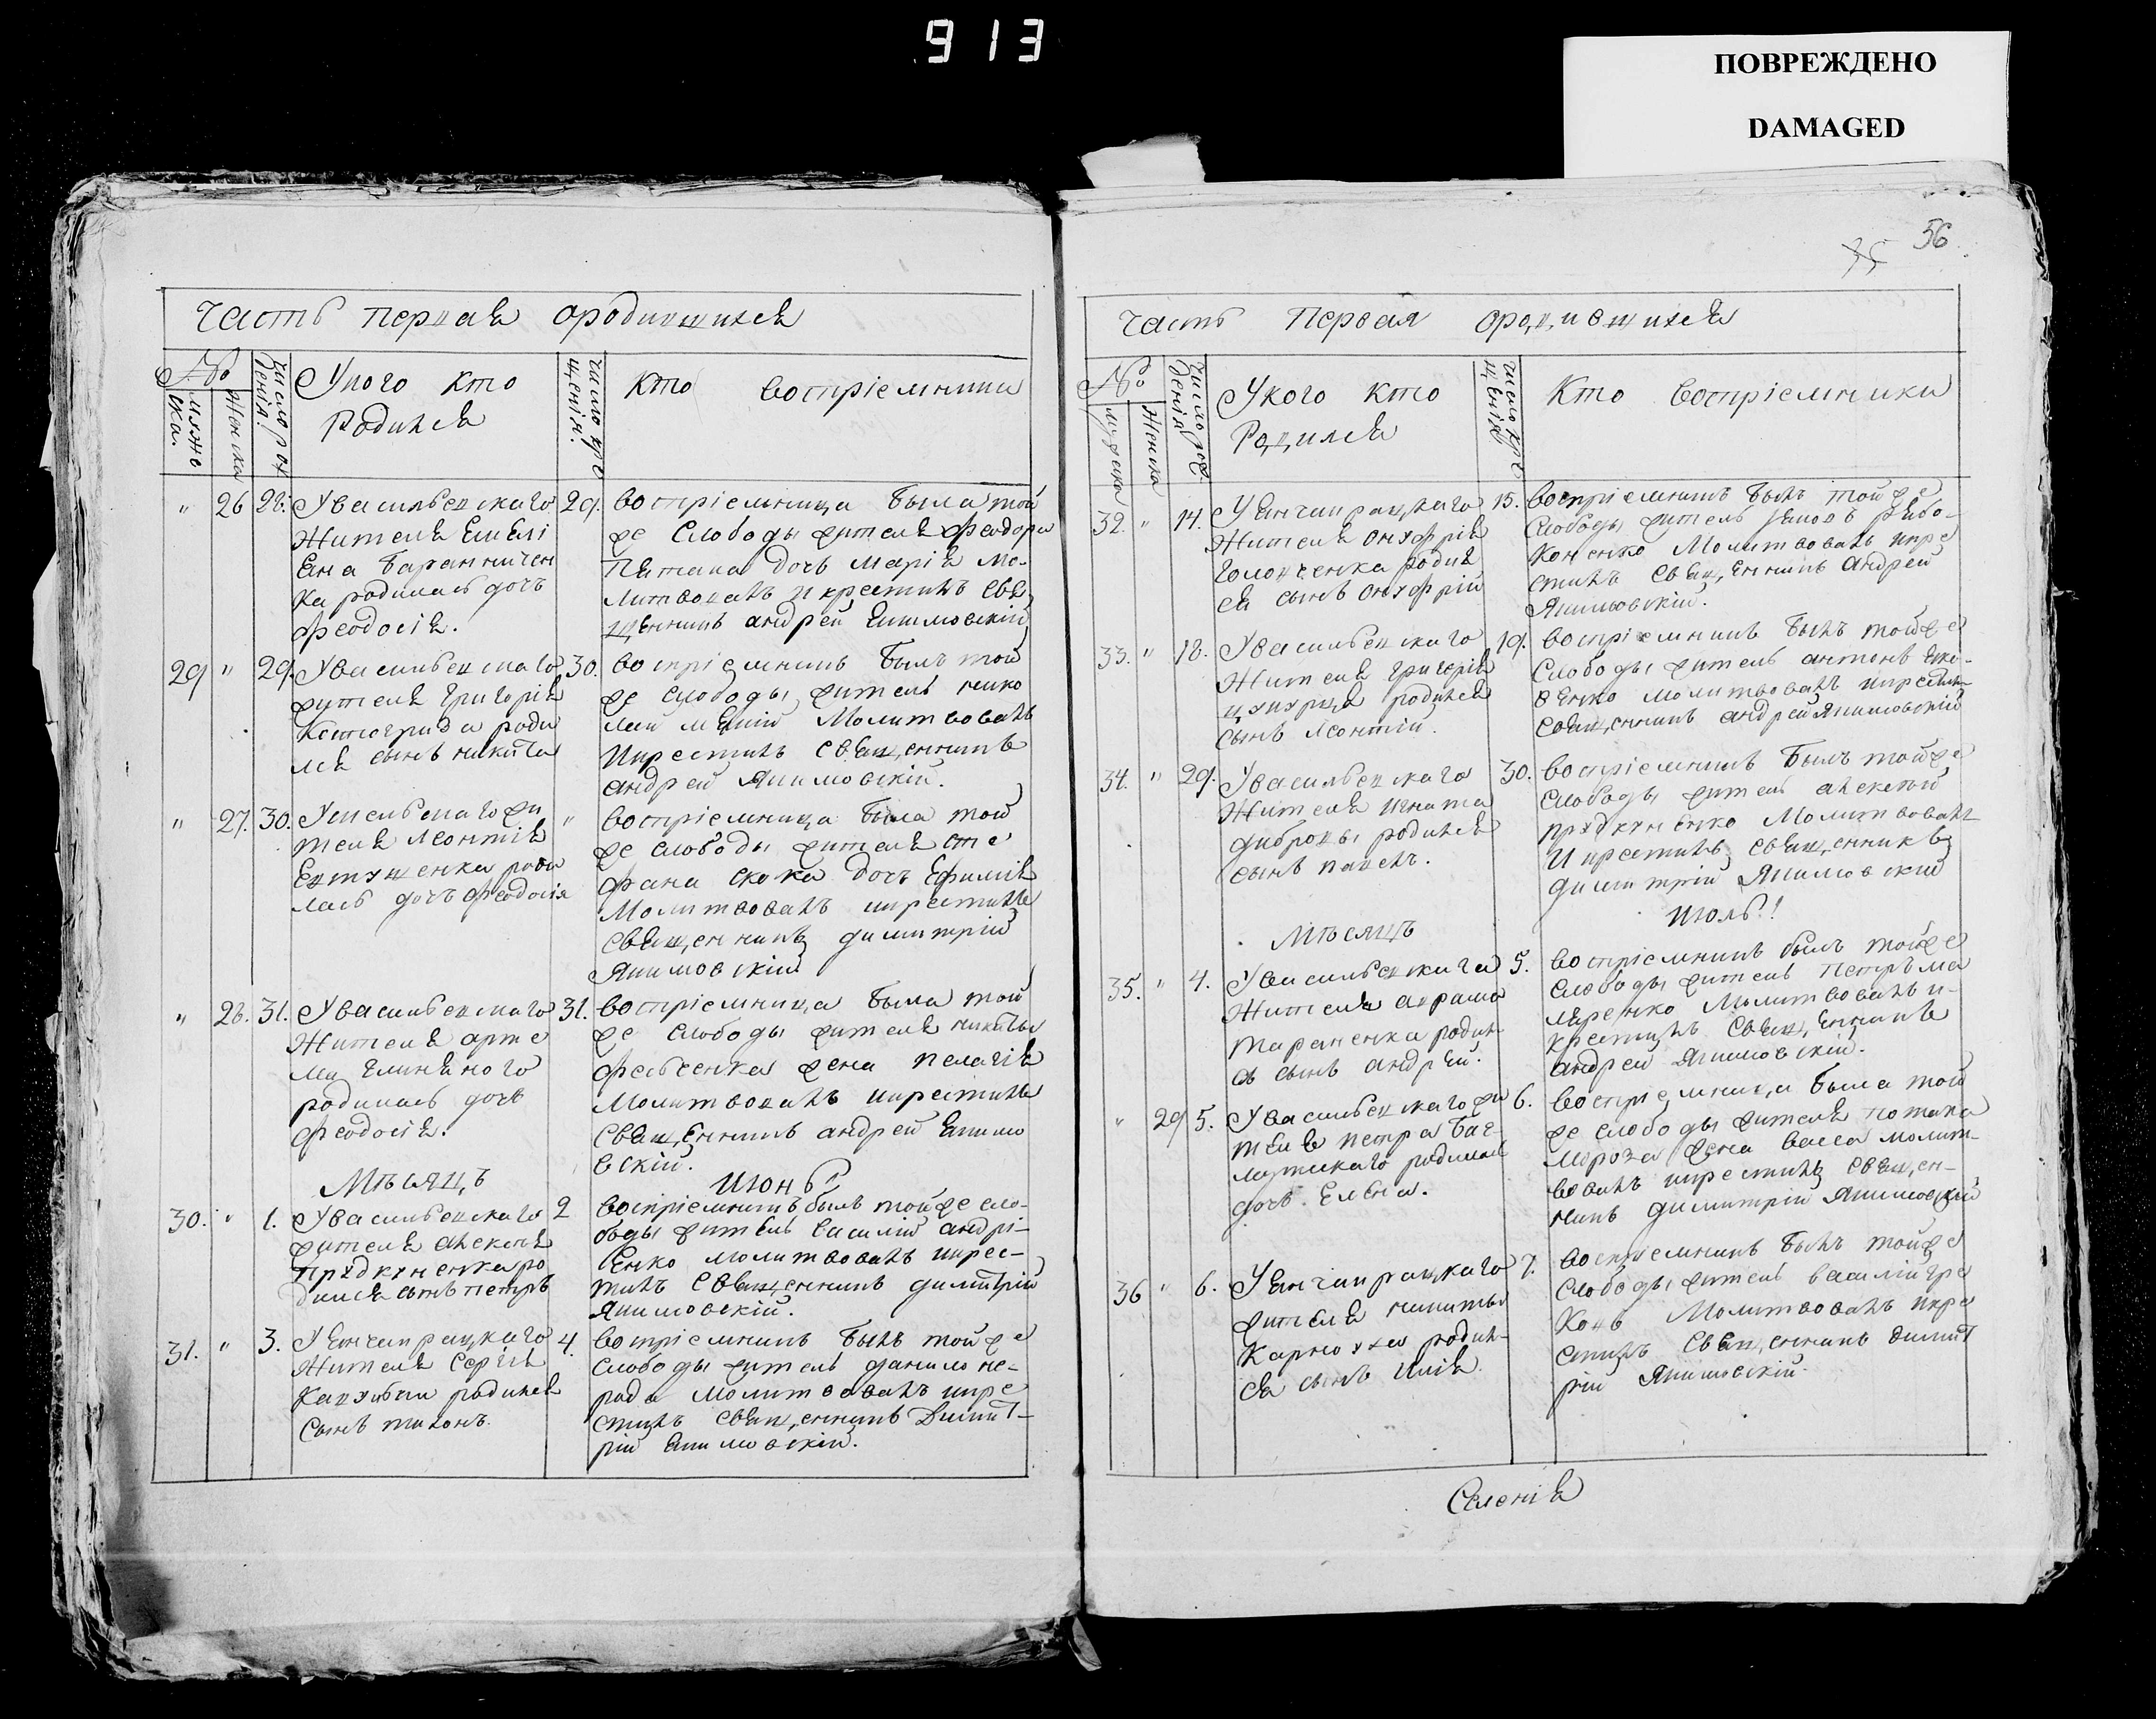 913
ПОВРЕЖДЕНО
DAMAGED
Часть первая ородившихся
№
мужеска.
Женска
Число рождения.
У кого кто
Родился
число крещения.
Кто воспріемники
" 26 28. У васильевскаго
Жителя Емелі
яна Баранничен
ка родилась дочь
феодосія.
29. воспріемница была той
же слободы жителя феодора
дочь марія мо-
литвовалъ и крестилъ свя
щенникъ андрей якимовскій
29 " 29. У васильевскаго
жителя григорія
Котогриза роди
лся сынъ никита
30. воспріемникъ былъ той
же слободы житель нико
лай Молитвовалъ
и крестилъ священникъ
андрей якимовскій.
" 27. 30. жи
теля леонтія
Евтушенка роди
лась дочь феодосія
" воспріемница была той
же слободы жителя сте
фана скока дочь Ефимія
Молитвовалъ и крестилъ
священникъ димитрій
якимовскій
" 28. 31. У васильевскаго
Жителя арте
ма
родилась дочь
феодосія.
31. воспріемница была той
же слободы жителя никиты
жена пелагія
Молитвовалъ и крестилъ
священникъ андрей якимо
вскій.
Мѣсяцъ июнь
30. " 1. У васильевскаго
жителя алексея
прудкуненка ро
дился сынъ петръ
2 воспріемникъ былъ тойже сло-
боды житель василій андрі-
енко молитвовалъ и крес-
тилъ священникъ димитрій
якимовскій.
31. " 3. У янчипрацкаго
Жителя Сергія
родился
сынъ тихонъ.
4. воспріемникъ былъ тойже
слободы житель данило не-
рода молитвовалъ и кре
стилъ священникъ Димит-
рій якимовскій.
56
35
Часть Первая ородившихся
№
мужеска
Женска
число рождения
У кого кто
Родился
число крещения
Кто воспріемники
32. " 14. У янчипрацкаго
Жителя онуфрія
головченка родил
ся сынъ онуфрій
15. воспріемникъ былъ тойже
слободы житель яковъ рябо-
коненко Молитвовалъ и кре
стилъ священникъ андрей
якимовскій.
33. " 18. У васильевскаго
Жителя григорія
родился
сынъ леонтій.
19. воспріемникъ былъ тойже
слободы житель антонъ
венко молитвовалъ и крестилъ
священникъ андрей якимовскій
34. " 29. У васильевскаго
Жителя игната
дибровы родился
сынъ павелъ.
30. воспріемникъ былъ тойже
слободы житель алексей
прудкуненко Молитвовалъ
и крестилъ священникъ
димитрій якимовскій
Мѣсяцъ июль!
35. " 4. У васильевскаго
Жителя аврама
тараненка родил-
ся сынъ андрей.
5. воспріемникъ былъ тойже
слободы житель петръ ма
ляренко Молитвовалъ и-
крестилъ священникъ
андрей якимовскій.
" 29 5. У васильевскаго жи
теля петра баг-
лицкаго родилась
дочь Елена.
6. воспріемница была той
же слободы жителя потапа
мороза жена васса молит-
вовалъ и крестилъ священ-
никъ димитрій якимовскій
36 " 6. У янчипрацкаго
жителя никиты
Карноуха родил-
ся сынъ илія.
7. воспріемникъ былъ тойже
слободы житель василій гре
ковъ Молитвовалъ и кре
стилъ священникъ димит
рій якимовскій.
Селенія